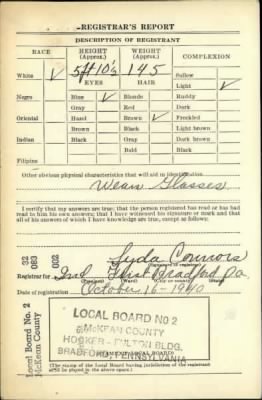 REGISTRAR'S REPORT
DESCRIPTION OF REGISTRANT
RACE HEIGHT (Approx.) WEIGHT (Approx.) COMPLEXION
White ✓ 5ft 10½ 145 Sallow
EYES HAIR Light ✓
Negro Blue ✓ Blonde Ruddy
Gray Red Dark
Oriental Hazel Brown ✓ Freckled
Brown Black Light brown
Indian Black Gray Dark brown
Bald Black
Filipino
Other obvious physical characteristics that will aid in identification
Wears Glasses
I certify that my answers are true; that the person registered has read or has had
read to him his own answers; that I have witnessed his signature or mark and that
all of his answers of which I have knowledge are true, except as follows:
32
083
002
Lyda Connors
Registrar for 2nd First Bradford Pa
Date of registration October 16-1940
Local Board No. 2
McKean County
LOCAL BOARD NO 2
McKEAN COUNTY
HOOKER - FULTON BLDG.
BRADFORD, PENNSYLVANIA
(STAMP OF LOCAL BOARD)
(The stamp of the Local Board having jurisdiction of the registrant
shall be placed in the above space.)